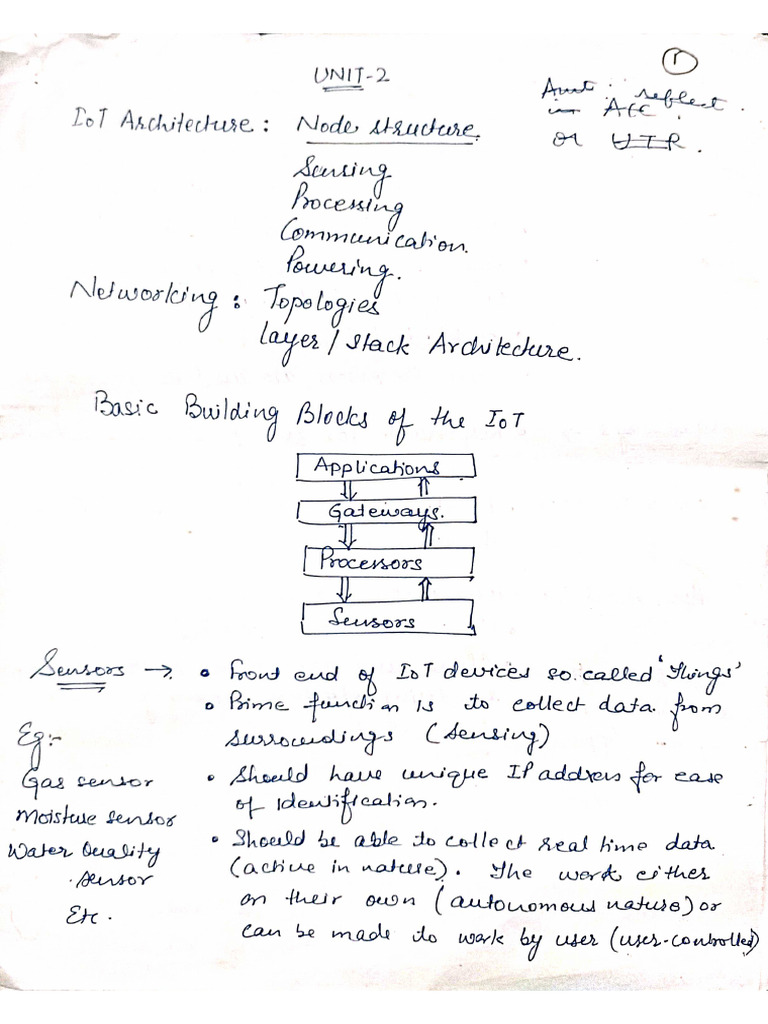 1
UNIT-2
Amt. reflect.
in Acc.
or UTR.
IoT Architecture: Node structure.
Sensing
Processing
Communication.
Powering.
Networking: Topologies
Layer / Stack Architecture.
Basic Building Blocks of the IoT
Applications
Gateways.
Processors
Sensors
Sensors → • Front end of IoT devices so called 'Things'
• Prime function is to collect data from
surroundings (sensing)
Eg:-
Gas sensor
Moisture sensor
Water Quality
sensor
Etc.
• Should have unique IP address for ease
of identification.
• Should be able to collect real time data
(active in nature). The work either
on their own (autonomous nature) or
can be made to work by user (user-controlled)